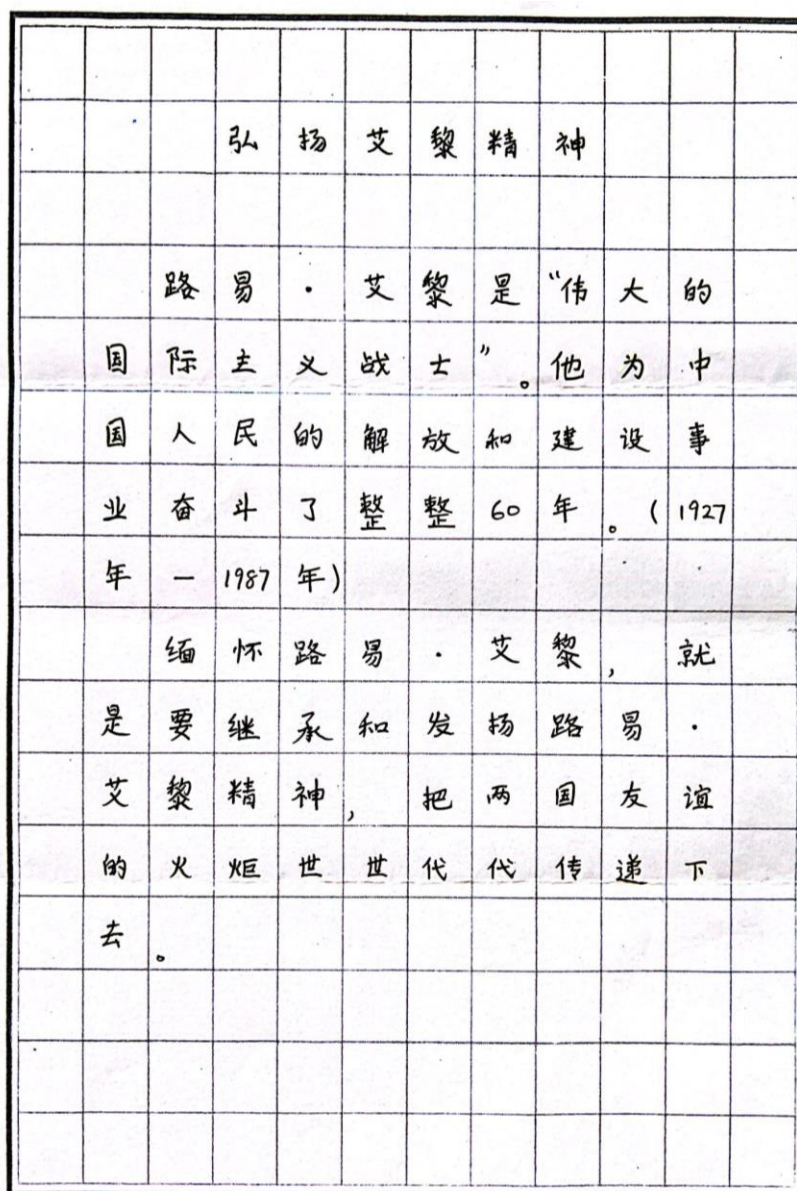 弘扬艾黎精神
路易·艾黎是“伟大的
国际主义战士”。他为中
国人民的解放和建设事
业奋斗了整整60年。(1927
年—1987年)
缅怀路易·艾黎,就
是要继承和发扬路易·
艾黎精神,把两国友谊
的火炬世世代代传递下
去。